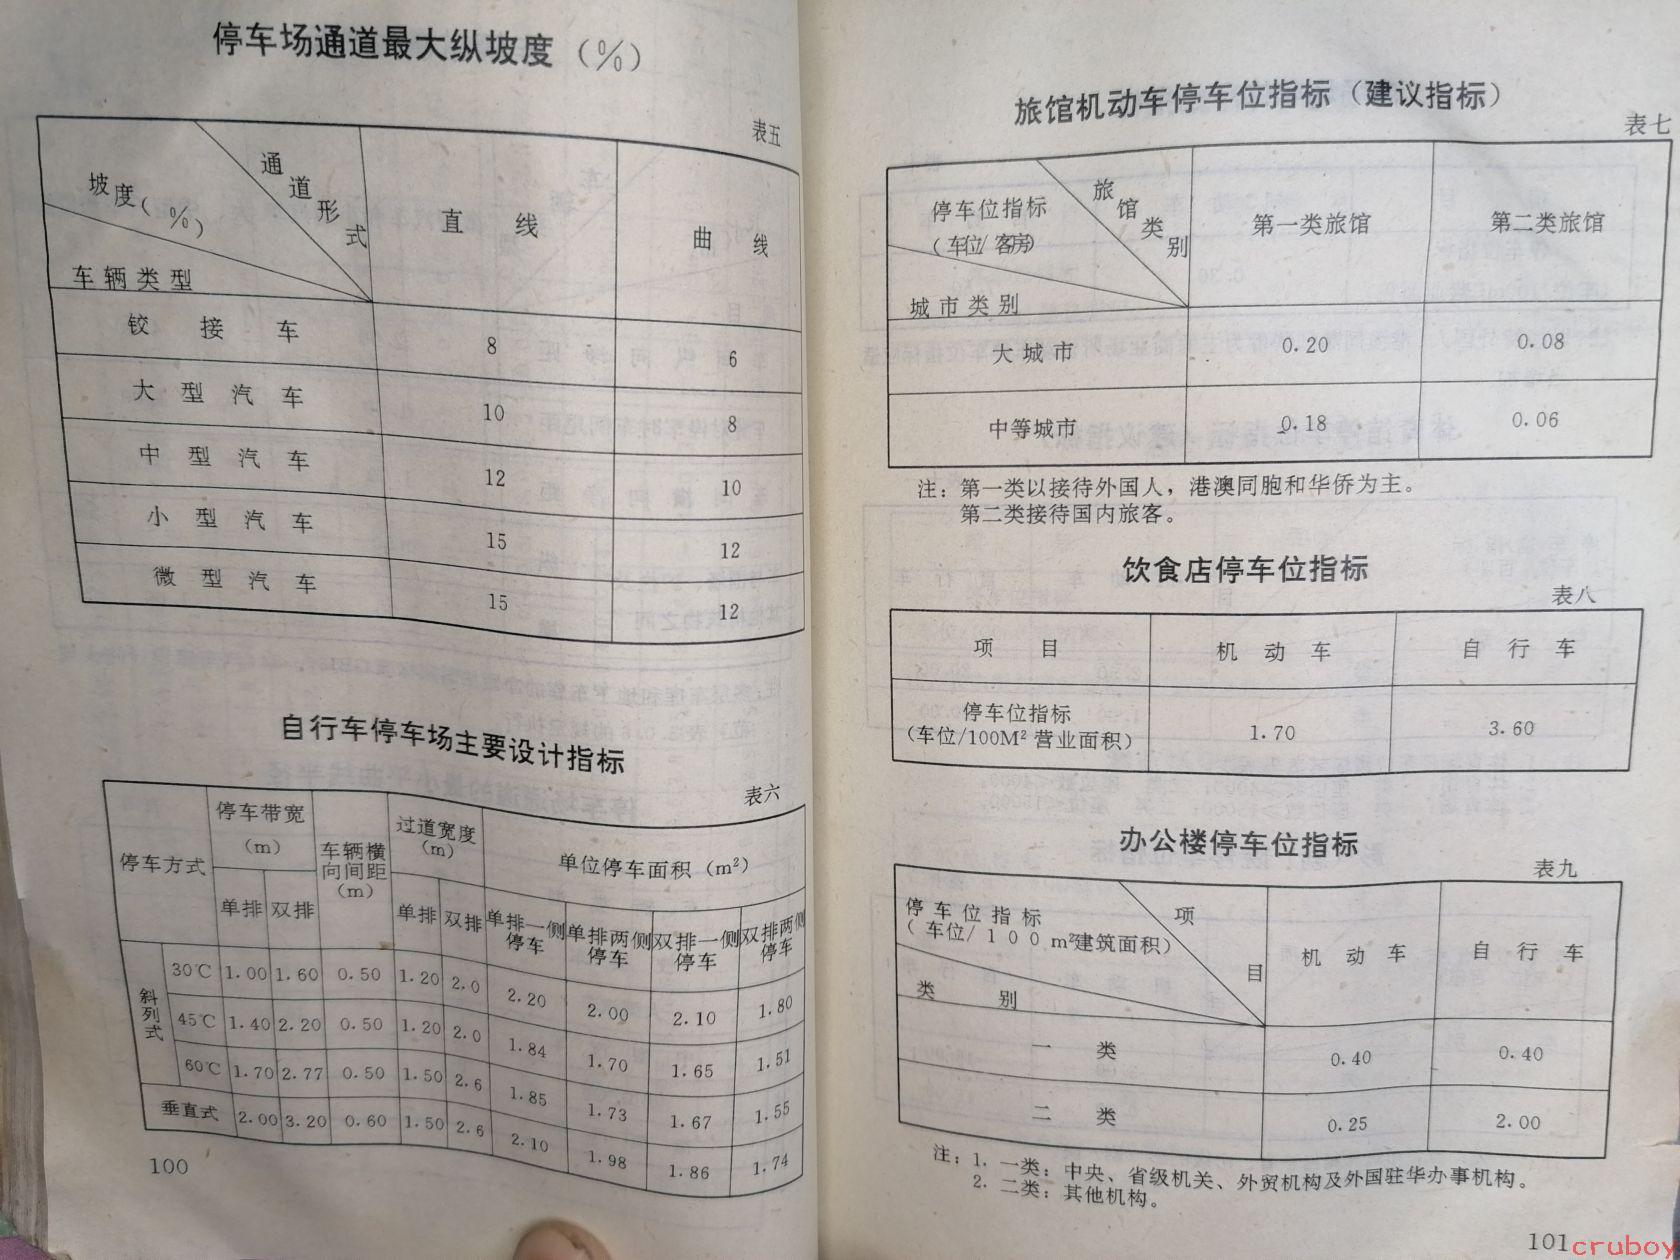 停车场通道最大纵坡度（%）
表五
坡度(%) 通道形式 车辆类型 直线 曲线
铰接车 8 6
大型汽车 10 8
中型汽车 12 10
小型汽车 15 12
微型汽车 15 12
自行车停车场主要设计指标
表六
停车方式 停车带宽(m) 车辆横向间距(m) 过道宽度(m) 单位停车面积（m²）
单排 双排 单排 双排 单排一侧停车 单排两侧停车 双排一侧停车 双排两侧停车
斜列式
30℃ 1.00 1.60 0.50 1.20 2.0 2.20 2.00 2.10 1.80
45℃ 1.40 2.20 0.50 1.20 2.0 1.84 1.70 1.65 1.51
60℃ 1.70 2.77 0.50 1.50 2.6 1.85 1.73 1.67 1.55
垂直式 2.00 3.20 0.60 1.50 2.6 2.10 1.98 1.86 1.74
100
旅馆机动车停车位指标（建议指标）
表七
停车位指标（车位/客房） 旅馆类别 城市类别 第一类旅馆 第二类旅馆
大城市 0.20 0.08
中等城市 0.18 0.06
注：第一类以接待外国人，港澳同胞和华侨为主。
第二类接待国内旅客。
饮食店停车位指标
表八
项目 机动车 自行车
停车位指标（车位/100M²营业面积） 1.70 3.60
办公楼停车位指标
表九
停车位指标（车位/100m²建筑面积） 项目 类别 机动车 自行车
一类 0.40 0.40
二类 0.25 2.00
注：1. 一类：中央、省级机关、外贸机构及外国驻华办事机构。
2. 二类：其他机构。
101
cruboy